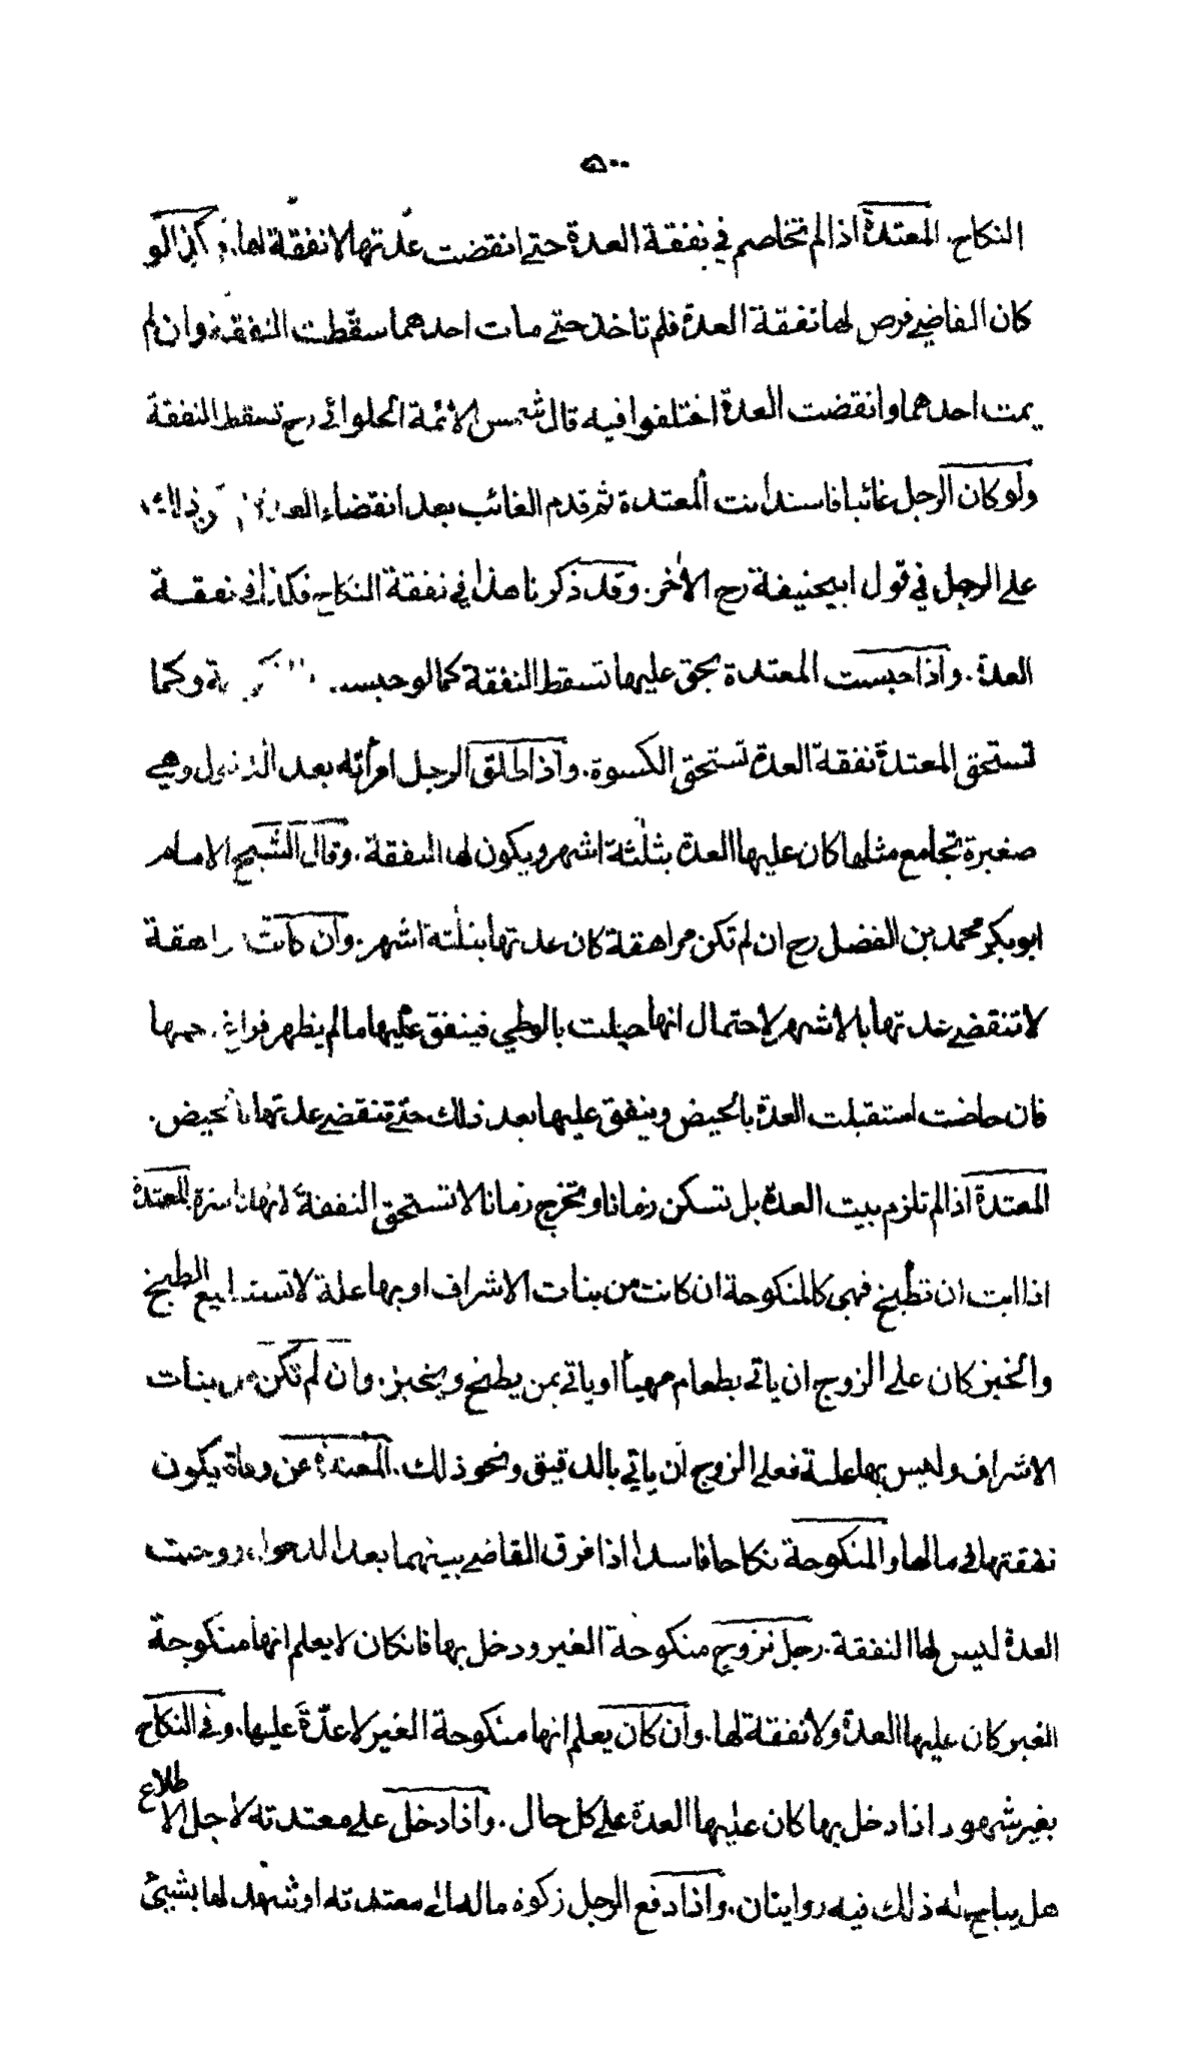 ٥٠٠
النكاح. المعتدة اذا لم تخاصم في نفقة العدة حتے انقضت عدتها لا نفقة لها. وكذا لو
كان القاضے فرض لها نفقة العدة فلم تاخذ حتے مات احدهما سقطت النفقة. وان لم
يمت احدهما وانقضت العدة اختلفوا فيه قال شمس الائمة الحلوائے رح تسقط النفقة
ولو كان الرجل غائبا فاستدانت المعتدة ثم قدم الغائب بعد انقضاء بذلك
علے الرجل في قول ابيحنيفة رح الاخر. وقد ذكرنا هذا في نفقة النكاح فكذا في نفقة
العدة. واذا حبست المعتدة بحق عليها تسقط النفقة كما لو حبست وكما
تستحق المعتدة نفقة العدة تستحق الكسوة. واذا طلق الرجل امرأته بعد الدخول وهے
صغيرة تجامع مثلها كان عليها العدة بثلٰثة اشهر ويكون لها النفقة. وقال الشيخ الامام
ابو بكر محمد بن الفضل رح ان لم تكن مراهقة كان عدتها بثلٰثة اشهر. وان كانت مراهقة
لا تنقضے عدتها بالاشهر لاحتمال انها حبلت بالوطي فينفق عليها ما لم يظهر فراغ رحمها
فان حاضت استقبلت العدة بالحيض وينفق عليها بعد ذلك حتے تنقضے عدتها بالحيض.
المعتدة اذا لم تلزم بيت العدة بل تسكن زمانا وتخرج زمانا لا تستحق النفقة لانها ناشزة. المعتدة
اذا ابت ان تطبخ فهي كالمنكوحة ان كانت من بنات الاشراف او بها علة لا تستطيع الطبخ
والخبز كان علے الزوج ان ياتے بطعام مهيأ او ياتے بمن يطبخ ويخبز. وان لم تكن من بنات
الاشراف وليس بها علة فعلے الزوج ان ياتے بالدقيق ونحو ذلك. المعتدة عن وفاة يكون
نفقتها في مالها والمنكوحة نكاحا فاسدا اذا فرق القاضے بينهما بعد الدخول ووجبت
العدة ليس لها النفقة. رجل تزوج منكوحة الغير ودخل بها فانكان لا يعلم انها منكوحة
الغير كان عليها العدة ولا نفقة لها. وان كان يعلم انها منكوحة الغير لا عدّة عليها. وفي النكاح
بغير شهود اذا دخل بها كان عليها العدة علے كل حال. واذا دخل علے معتدته لاجل الاطلاع
هل يباح له ذلك فيه روايتان. واذا دفع الرجل زكوة ماله الے معتدته او شهد لها بشيئ